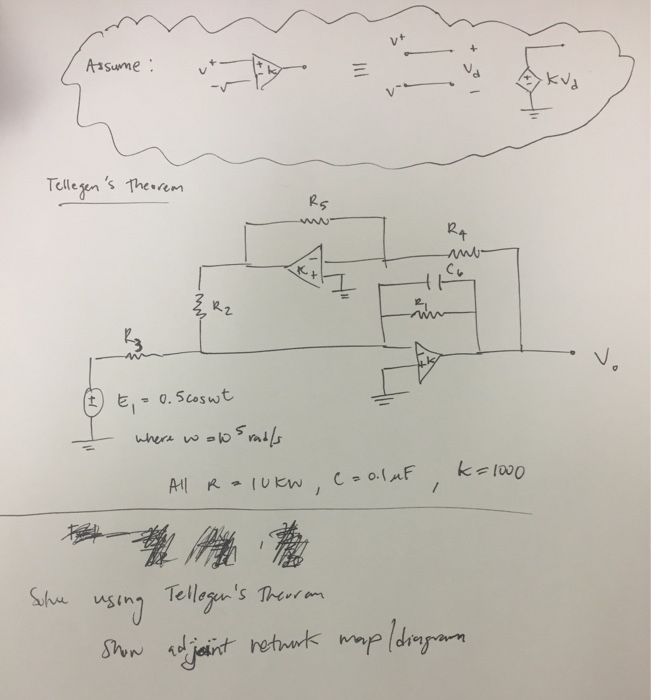 Assume :
V+
-V
+
-
K
≡
V+
V-
+
Vd
-
+
-
KVd
Tellegen's Theorem
R5
R4
K
-
+
C6
R1
R2
R3
-
+
K
Vo
±
E1 = 0.5coswt
where w = 10^5 rad/s
All R = 10KW , C = 0.1µF , K = 1000
Solve using Tellegen's Theorem
Show adjoint network map/diagram